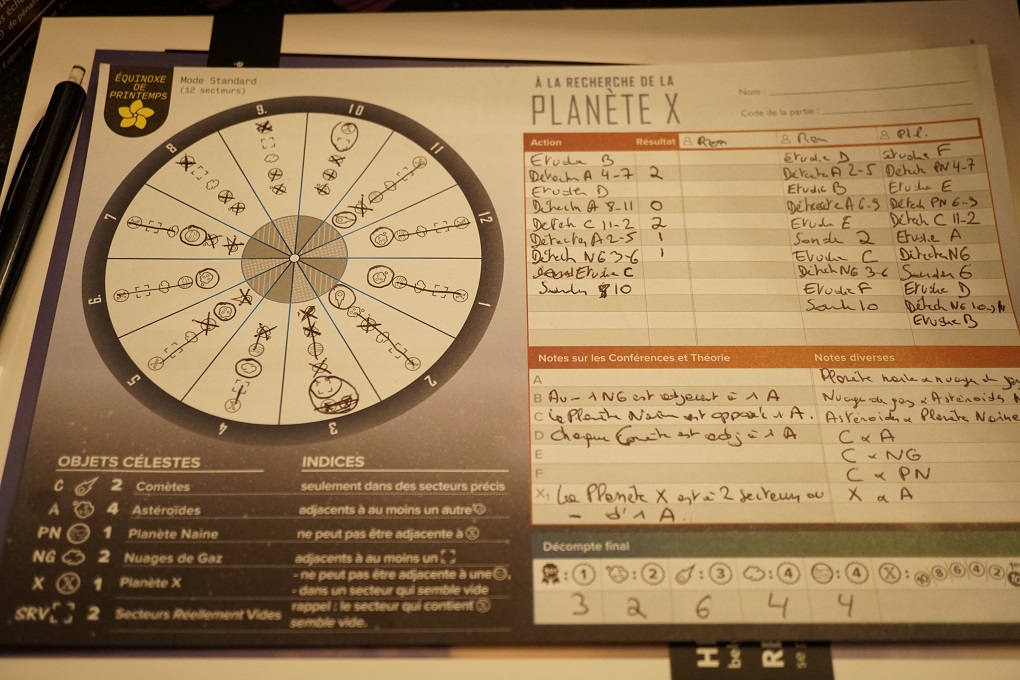 ÉQUINOXE
DE
PRINTEMPS
Mode Standard
(12 secteurs)
À LA RECHERCHE DE LA
PLANÈTE X
Nom :
Code de la partie :
9.
10
8
11
7
12
6.
1
5
2
4
3
Action Résultat Ron Phl.
Etudie B Etudie D Etudie F
Détecte A 4-7 2 Détecte A 2-5 Détecte PN 4-7
Etudie D Etudie B Etudie E
Détecte A 8-11 0 Détecte A 6-9 Détecte PN 6-9
Détecte C 11-2 2 Etudie E Détecte C 11-2
Détecte A 2-5 1 Sonde 2 Etudie A
Détecte NG 3-6 1 Etudie C Détecte NG
Etudie C Détecte NG 3-6 Sonde 6
10 Etudie F Etudie D
Sonde 10 Détecte NG
Etudie B
Notes sur les Conférences et Théorie Notes diverses
A
B Au - 1 NG est adjacent à 1 A
C La Planète Naine est opposée 1 A.
D Chaque Comète est adj à 1 A C A
E C NG
F C PN
X1 La Planète X est à 2 secteurs ou X A
- d'1 A.
OBJETS CÉLESTES INDICES
C 2 Comètes seulement dans des secteurs précis
A 4 Astéroïdes adjacents à au moins un autre
PN 1 Planète Naine ne peut pas être adjacente à
NG 2 Nuages de Gaz adjacents à au moins un
X 1 Planète X - ne peut pas être adjacente à une
- dans un secteur qui semble vide
SRV 2 Secteurs Réellement Vides rappel : le secteur qui contient
semble vide.
Décompte final
: 1 : 2 : 3 : 4 : 4 : 10 8 6 4 2
3 2 6 4 4